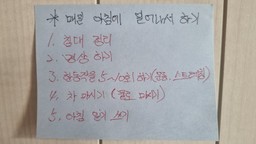 * 매일 아침에 일어나서 하기
1. 침대 정리
2. 명상 하기
3. 한동작을 5~10회 하기(운동, 스트레칭)
4. 차 마시기 (물로 마시기)
5. 아침 일기 쓰기